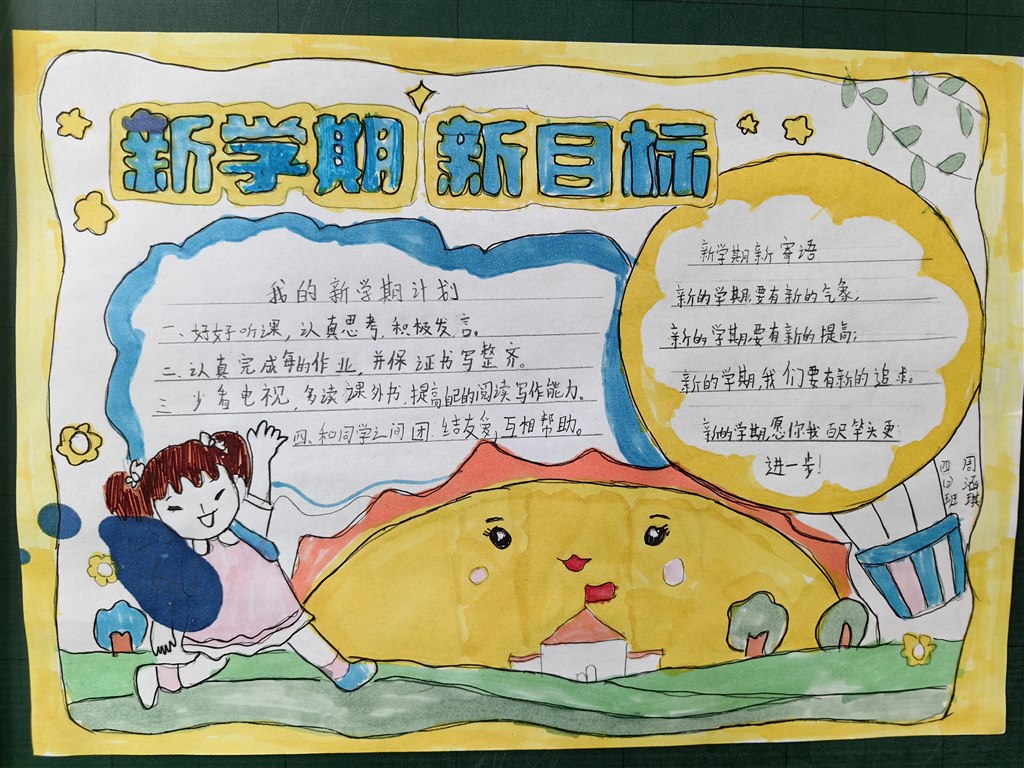 新学期 新目标
我的新学期计划
一、好好听课，认真思考，积极发言。
二、认真完成每的作业，并保证书写整齐。
三、少看电视，多读课外书，提高自己的阅读写作能力。
四、和同学之间团结友爱，互相帮助。
新学期新寄语
新的学期，要有新的气象；
新的学期，要有新的提高；
新的学期，我们要有新的追求。
新的学期，愿你我百尺竿头更
进一步！
四（1）班
周涵琪